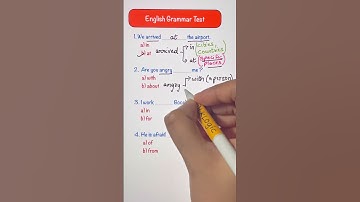 English Grammar Test
1. We arrived ..at.. the airport.
a) in
b) at
arrived
in
cities,
countries
at
specific
places
2. Are you angry ........ me?
a) with
b) about
angry
with (a person)
3. I work ........
a) in
b) for
4. He is afraid
a) of
b) from